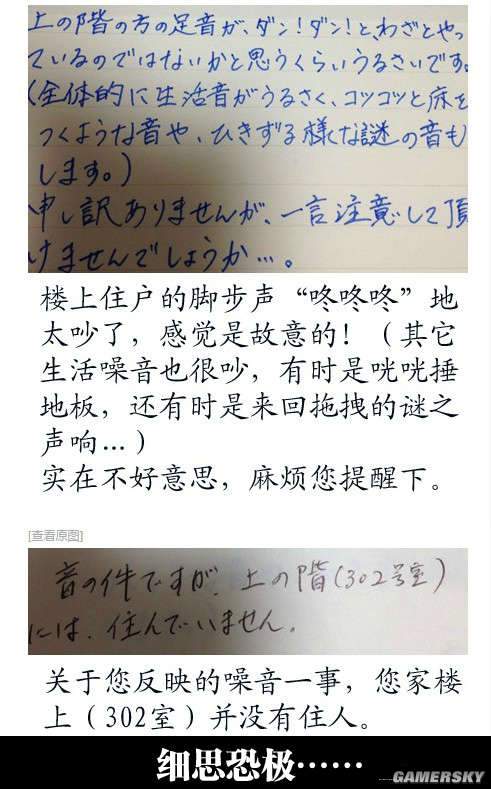 上の階の方の足音が、ダン！ダン！と、わざとやっ
ているのではないかと思うくらいうるさいです。
(全体的に生活音がうるさく、コツコツと床を
つくような音や、ひきずる様な謎の音も
します。)
申し訳ありませんが、一言注意して頂
けませんでしょうか…。
楼上住户的脚步声“咚咚咚”地
太吵了，感觉是故意的！（其它
生活噪音也很吵，有时是咣咣捶
地板，还有时是来回拖拽的谜之
声响…）
实在不好意思，麻烦您提醒下。
[查看原图]
音の件ですが、上の階(302号室)
には、住んでいません。
关于您反映的噪音一事，您家楼
上（302室）并没有住人。
细思恐极……
GAMERSKY